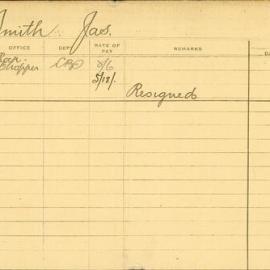 Smith Jas.
OFFICE DEP. RATE OF PAY REMARKS DA
Chopper 8/6
5/18/.
Resigned